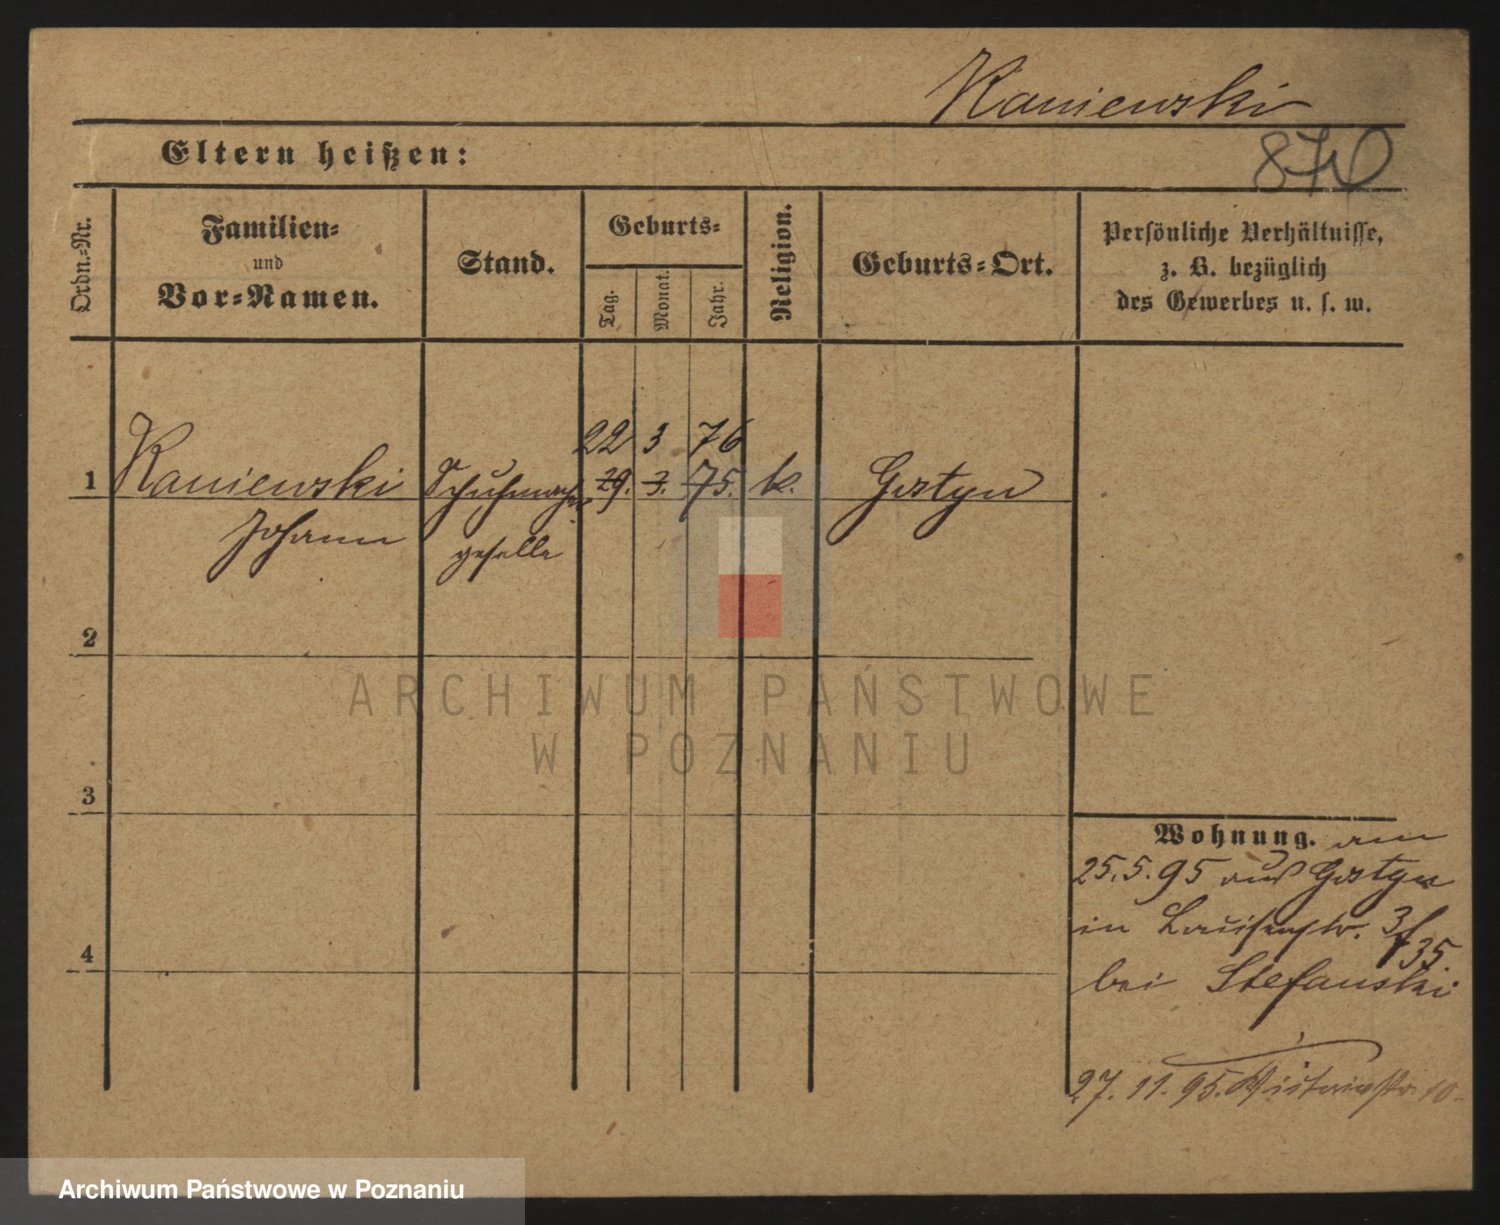 Kaniewski
Eltern heißen:
Ordn.-Nr.
Familien-
und
Vor-Namen.
Stand.
Geburts-
Tag.
Monat.
Jahr.
Religion.
Geburts-Ort.
Persönliche Verhältnisse,
z. B. bezüglich
des Gewerbes u. s. w.
22 3 76
1 Kaniewski Schuhmacher 29. 3. 75. k. Gostyn
Johann geselle
2
3
4
Wohnung. am
25.5.95 aus Gostyn
in Louisenstr. 3/
35.
bei Stefanski
27. 11. 95. 10.
ARCHIWUM PAŃSTWOWE
W POZNANIU
Archiwum Państwowe w Poznaniu